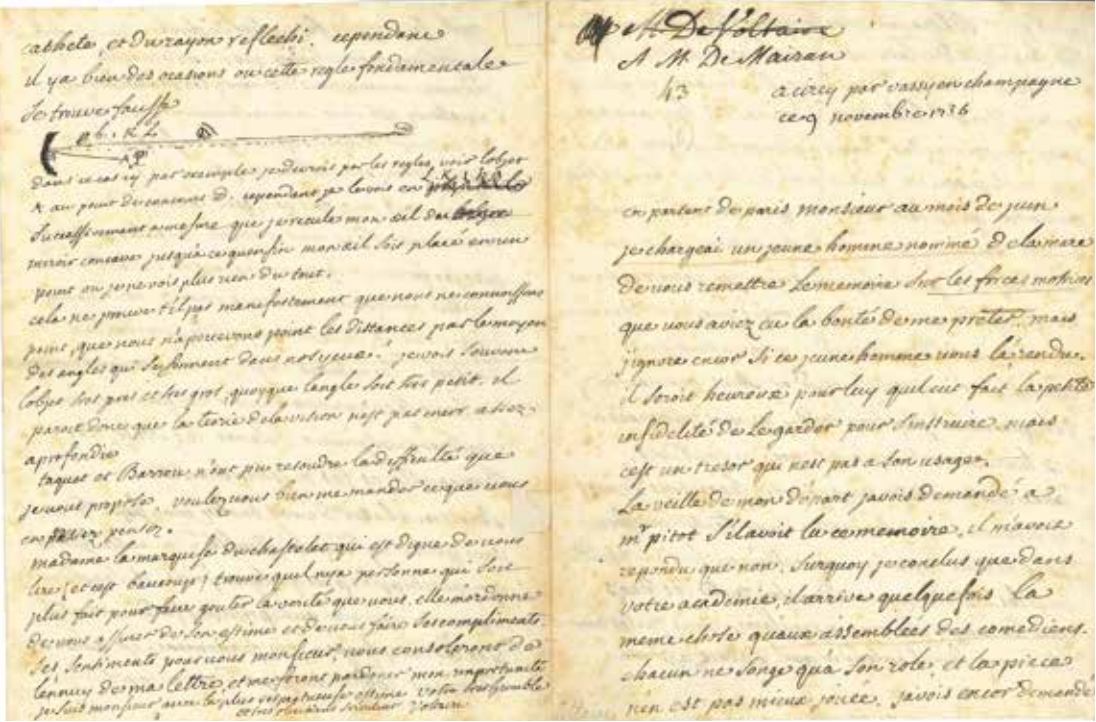 cathete, et du rayon reflechi. cependant
il ya bien des ocasions ou cette regle fondamentale
se trouve fausse
dans ce cas cy par exemple je devrois par les regles, voir l'objet
A au point de concours d. cependant je le vois en
successivement a mesure que je recule mon œil du
miroir concave jusqu'a ce qu'enfin mon œil soit placé en un
point ou je ne vois plus rien du tout.
cela ne prouve t'il pas manifestement que nous ne connoissons
point, que nous n'apercevons point les distances par le moyen
des angles qui se forment dans nos yeux? je vois souvent
l'objet tres pres et tres gros, quoyque l'angle soit tres petit. il
paroit donc que la teorie de la vision n'est pas encor assez
aprofondie
taquet et Barrou n'ont pu resoudre la difficulté que
je vous propose. voulez vous bien me mander ce que vous
en pensez.
madame la marquise du chastelet qui est digne de vous
lire (et c'est baucoup) trouve quil nya personne qui soit
plus fait pour faire gouter la verité que vous. elle m'ordonne
de vous assurer de son estime et de vous faire ses compliments.
ses sentiments pour vous monsieur, vous consoleront de
lennuy de ma lettre, et me feront pardoner mon importunité
je suis monsieur avec la plus respectueuse estime votre tres humble
et tres obeissant serviteur Voltaire
M. De Voltaire
A M. De Mairan
43
a cirey par vassy en champagne
ce 9 novembre 1736
en partant de paris monsieur au mois de juin
je chargeai un jeune homme nommé de la mare
de vous remettre le memoire sur les forces motrices
que vous aviez eu la bonté de me prêter. mais
j'ignore encor si ce jeune homme vous la rendu.
il seroit heureux pour luy quil eut fait la petite
infidelité de le garder pour s'instruire. mais
c'est un tresor qui n'est pas a son usage.
la veille de mon départ javois demandé a
mr pitot s'il avoit lu ce memoire, il m'avoit
repondu que non. surquoy je conclus que dans
votre academie, il arrive quelquefois la
meme chose quaux assemblées des comediens.
chacun ne songe qu'a son role, et la piece
nen est pas mieux jouée. javois encor demandé